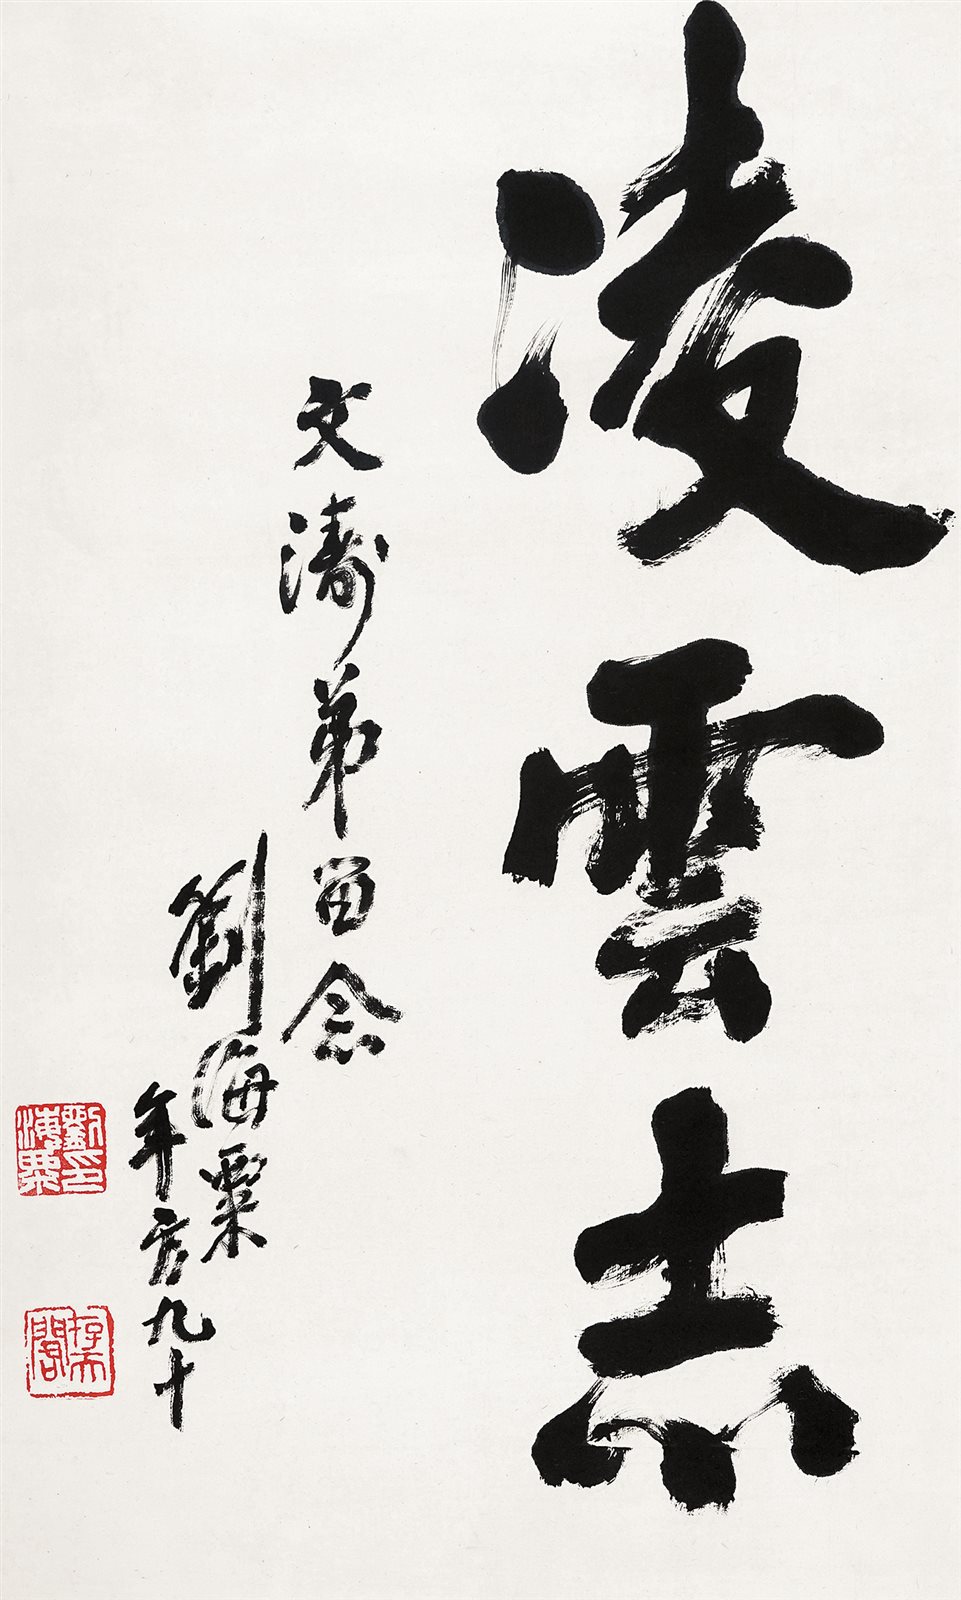 凌雲志
文濤弟留念
劉海粟
年方九十
劉海粟印
存天閣